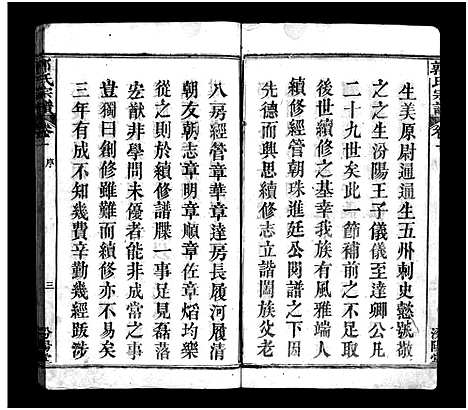 郭氏宗譜
卷一
生美原尉通通生五州刺史懿號敬
之之生汾陽王子儀儀至達卿公凡
二十九世矣此一節補前之不足取
後世續修之基幸我族有風雅端人
續修經管朝珠進廷公閱譜式體
先德而興思續修志立諧闔族父老
八房經管章華章達房長履河履清
朝友朝志章明章順章佐章熖均樂
從之則於續修譜牒一事足見磊落
宏猷非學問未優者能非成當之事
豈獨曰創修雖難而續修亦不易矣
三年有成不知幾費辛勤幾經跋涉
郭氏宗譜
卷一
序
三
汾陽堂